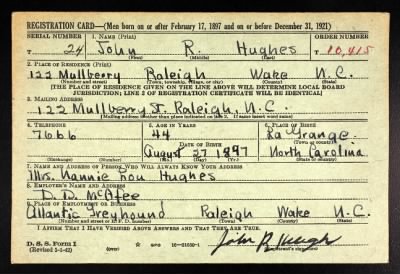 REGISTRATION CARD—(Men born on or after February 17, 1897 and on or before December 31, 1921)
SERIAL NUMBER 1. NAME (Print) ORDER NUMBER
T 24 John R. Hughes T 10,415
(First) (Middle) (Last)
2. PLACE OF RESIDENCE (Print)
122 Mullberry Raleigh Wake N.C.
(Number and street) (Town, township, village, or city) (County) (State)
[THE PLACE OF RESIDENCE GIVEN ON THE LINE ABOVE WILL DETERMINE LOCAL BOARD
JURISDICTION; LINE 2 OF REGISTRATION CERTIFICATE WILL BE IDENTICAL]
3. MAILING ADDRESS
122 Mullberry St. Raleigh, N.C.
[Mailing address if other than place indicated on line 2. If same insert word same]
4. TELEPHONE 5. AGE IN YEARS 6. PLACE OF BIRTH
7666 44 La Grange
DATE OF BIRTH (Town or county)
August 27 1897 North Carolina
(Exchange) (Number) (Mo.) (Day) (Yr.) (State or country)
7. NAME AND ADDRESS OF PERSON WHO WILL ALWAYS KNOW YOUR ADDRESS
Mrs. Nannie Lou Hughes
8. EMPLOYER'S NAME AND ADDRESS
D. D. McAfee
9. PLACE OF EMPLOYMENT OR BUSINESS
Atlantic Greyhound Raleigh Wake N.C.
(Number and street or R. F. D. number) (Town) (County) (State)
I AFFIRM THAT I HAVE VERIFIED ABOVE ANSWERS AND THAT THEY ARE TRUE.
D. S. S. Form 1
(Revised 4-1-42) (over) John R Hughes